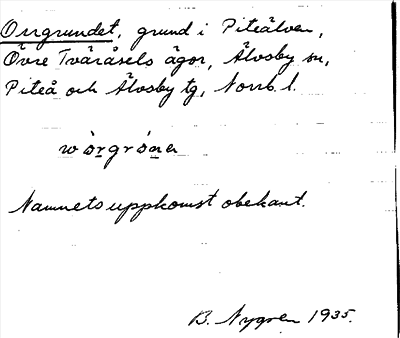 Orrgrundet, grund i Piteälven,
Övre Tväråsels ägor, Älvsby sn,
Piteå och Älvsby tg, Norrb. l.
Namnets uppkomst obekant.
B. Nygren 1935.